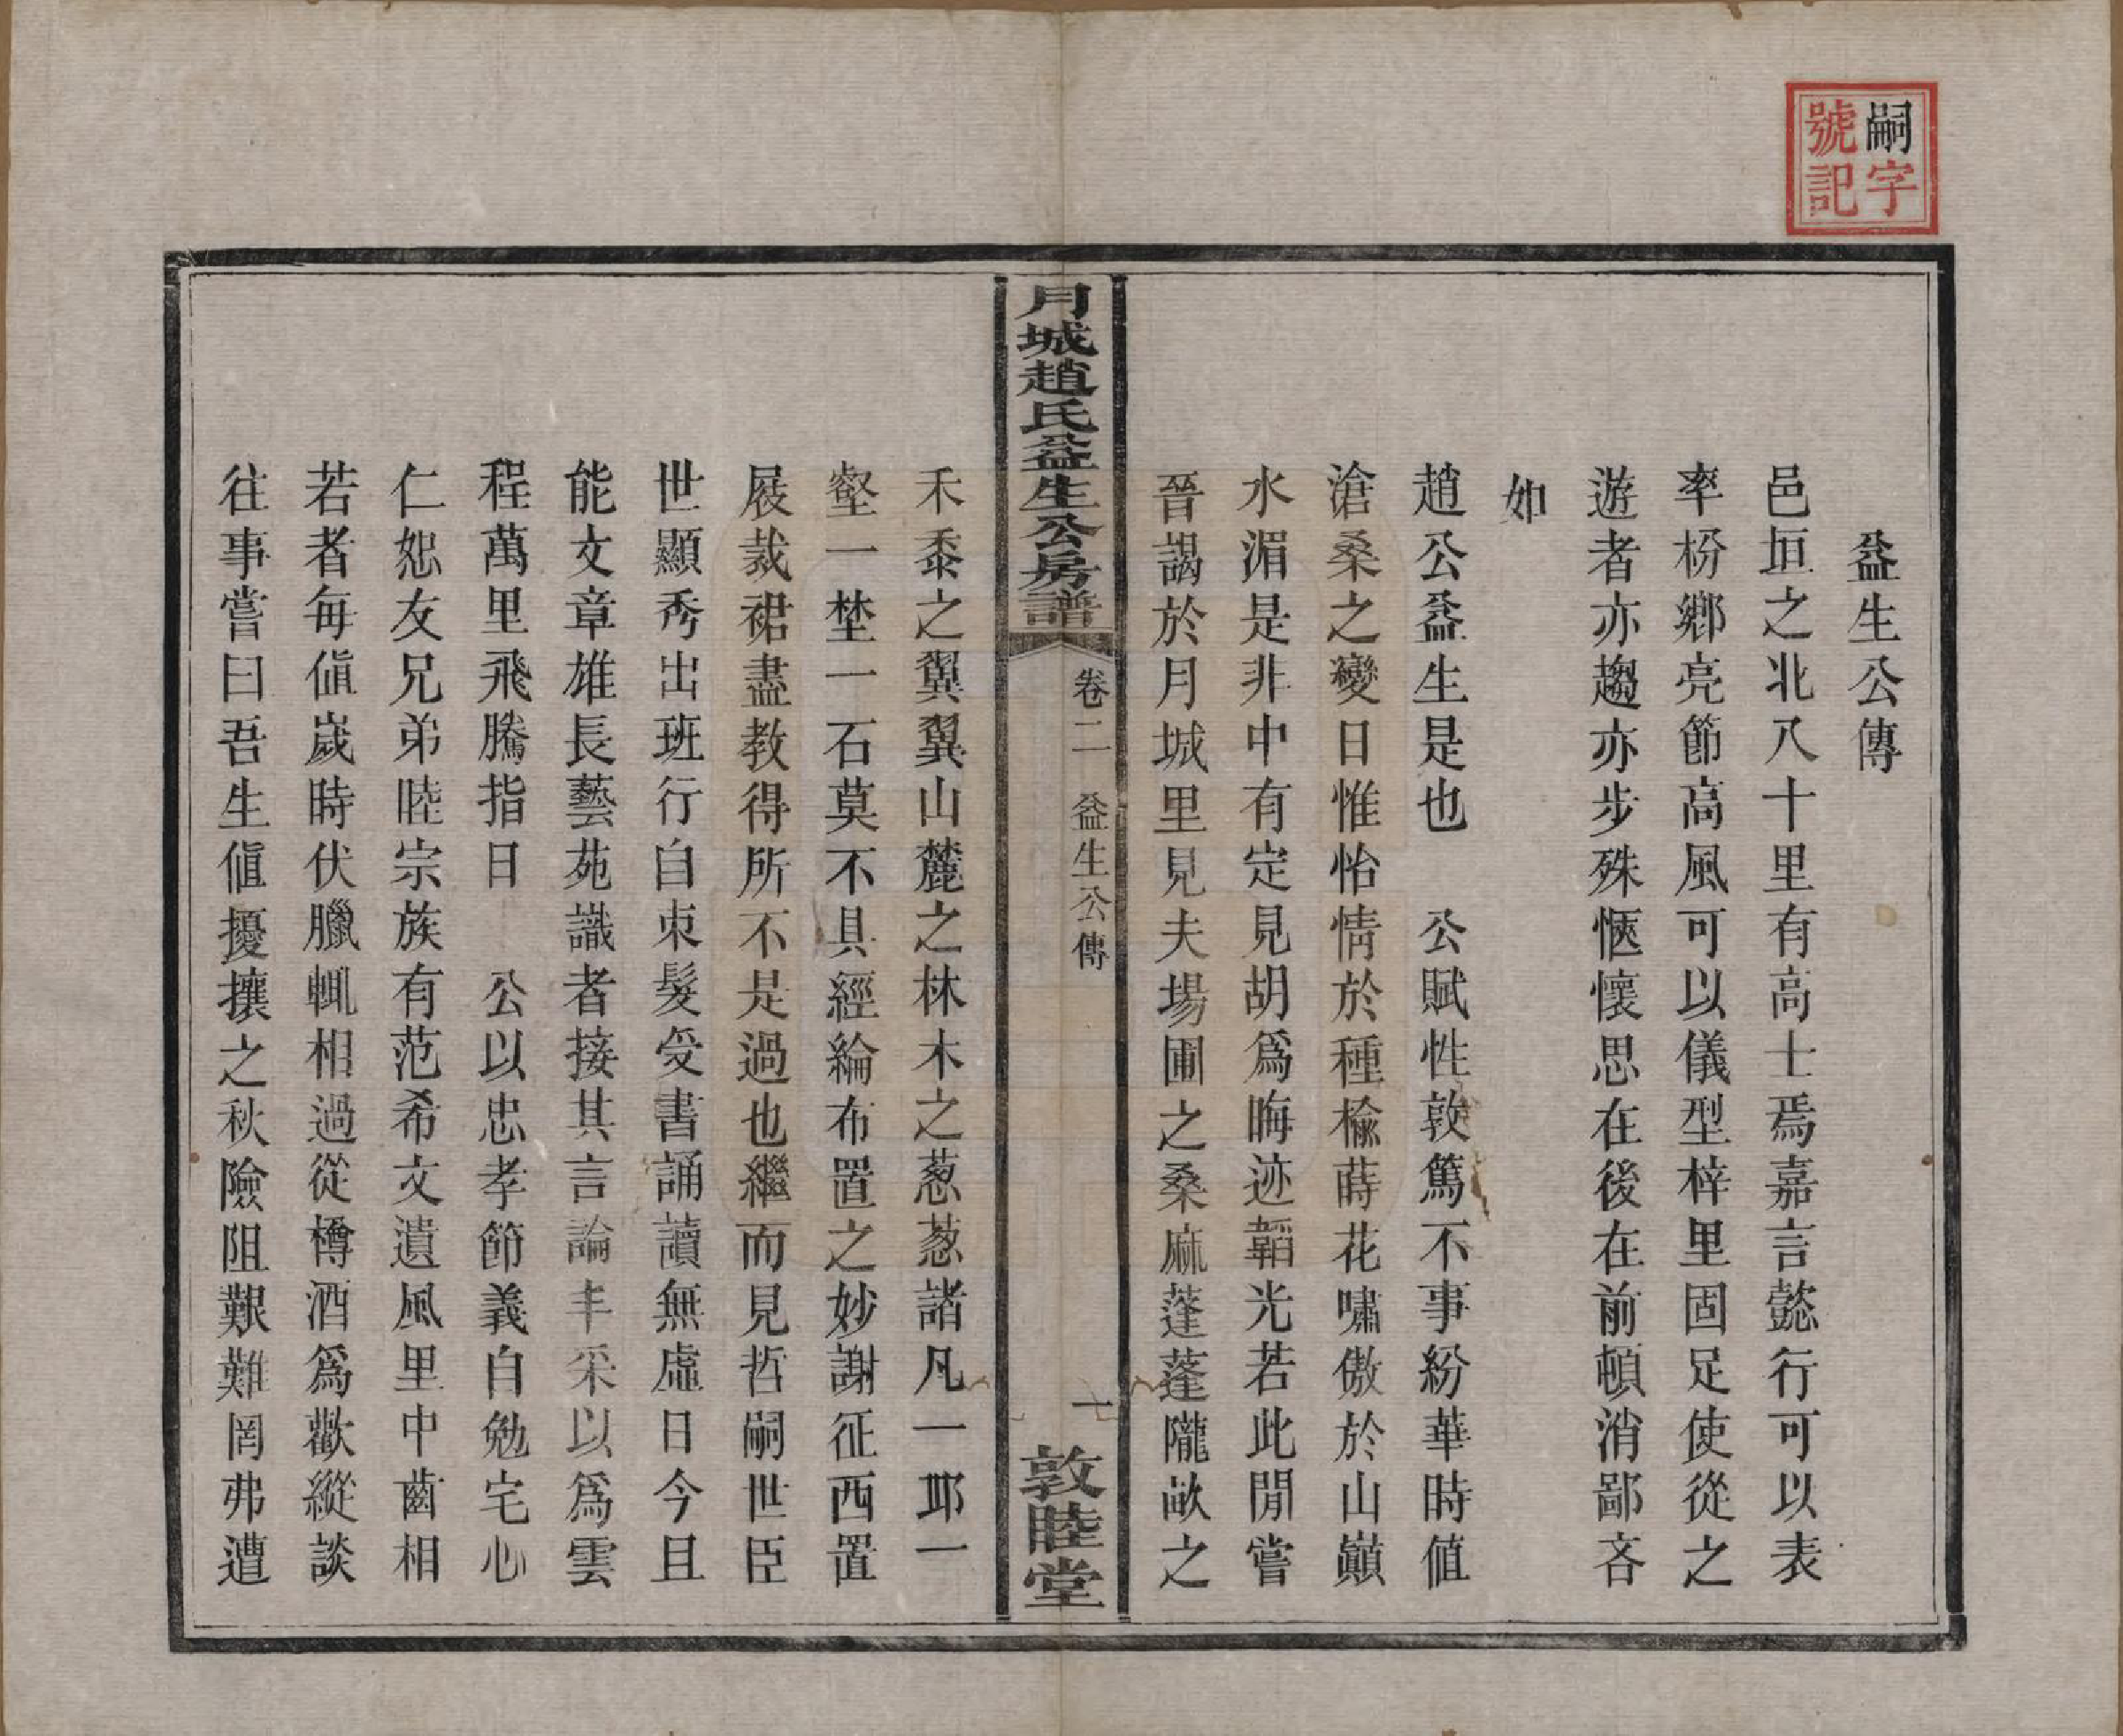 嗣字
號記
益生公傳
邑垣之北八十里有高士焉嘉言懿行可以表
率枌鄉亮節高風可以儀型梓里固足使從之
遊者亦趨亦步殊愜懷思在後在前頓消鄙吝
如
趙公益生是也　公賦性敦篤不事紛華時值
滄桑之變日惟怡情於種榆蒔花嘯傲於山巔
水湄是非中有定見胡爲晦迹韜光若此閒嘗
晉謁於月城里見夫場圃之桑麻蓬蓬隴畝之
月城趙氏益生公房譜
卷二　益生公傳
一
敦睦堂
禾黍之翼翼山麓之林木之葱葱諸凡一邱一
壑一埜一石莫不具經綸布置之妙謝征西置
屐裁裙盡教得所不是過也繼而見哲嗣世臣
世顯秀出班行自束髮受書誦讀無虛日今且
能文章雄長藝苑識者接其言論丰采以爲雲
程萬里飛騰指日　公以忠孝節義自勉宅心
仁恕友兄弟睦宗族有范希文遺風里中齒相
若者每値歲時伏臘輒相過從樽酒爲歡縱談
往事嘗曰吾生値擾攘之秋險阻艱難罔弗遭